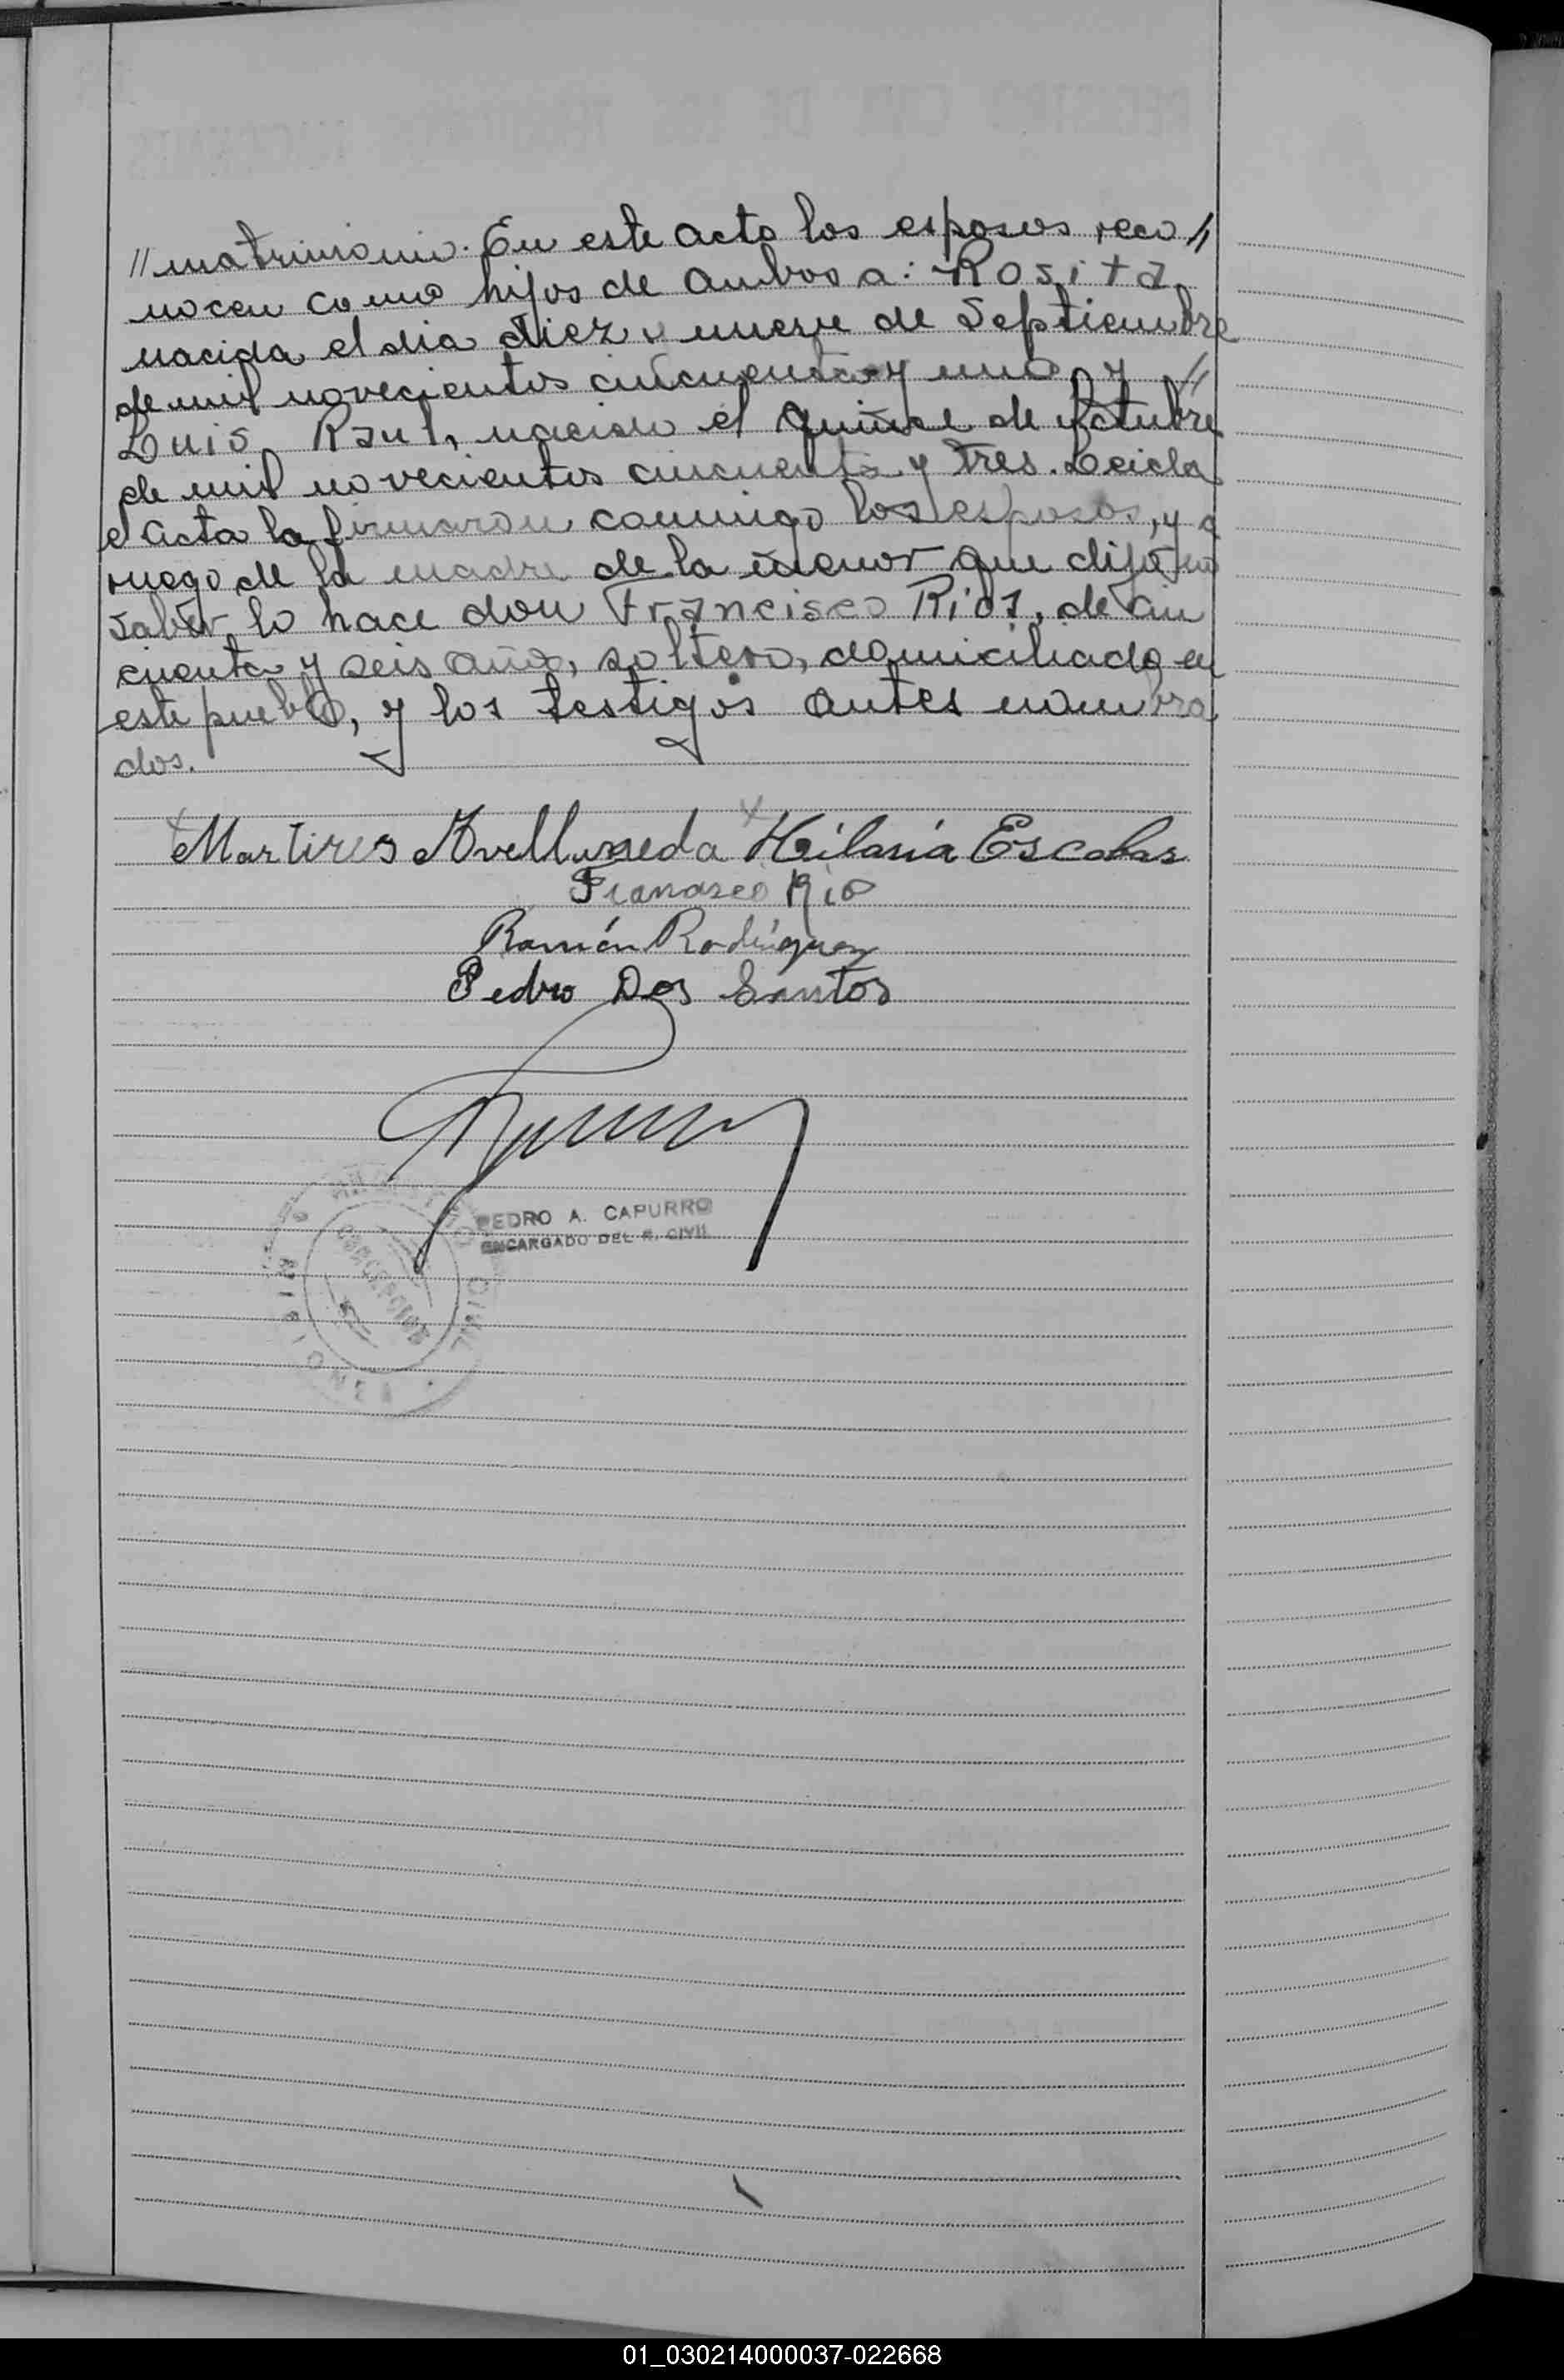 // matrimonio. En este acto los esposos reco //
nocen como hijos de ambos a: Rosita,
nacida el dia diez y nueve de Septiembre
de mil novecientos cincuenta y uno, y //
Luis Raul, nacido el quince de Octubre
de mil novecientos cincuenta y tres. Leida
el acta la firmaron conmigo los esposos, y a
ruego de la madre de la menor que dijo no
saber, lo hace don Francisco Rios, de cin
cuenta y seis años, soltero, domiciliado en
este pueblo, y los testigos antes nombra
dos.
Martires Avellaneda Hilaria Escobar
Francisco Rio
Ramón Rodriguez
Pedro Dos Santos
PEDRO A. CAPURRO
ENCARGADO DEL R. CIVIL
01_030214000037-022668